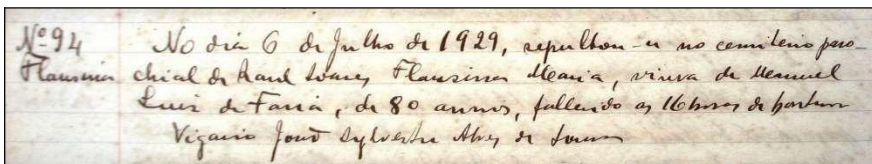 Nº 94 No dia 6 de Julho de 1929, sepultou-se no cemiterio paro-
Flausina chial de Raul Soares Flausina Maria, viuva de Manuel
Luiz de Faria, de 80 annos, fallecido as 16 horas de hontem
Vigario José Sylvestre Alves de Souza